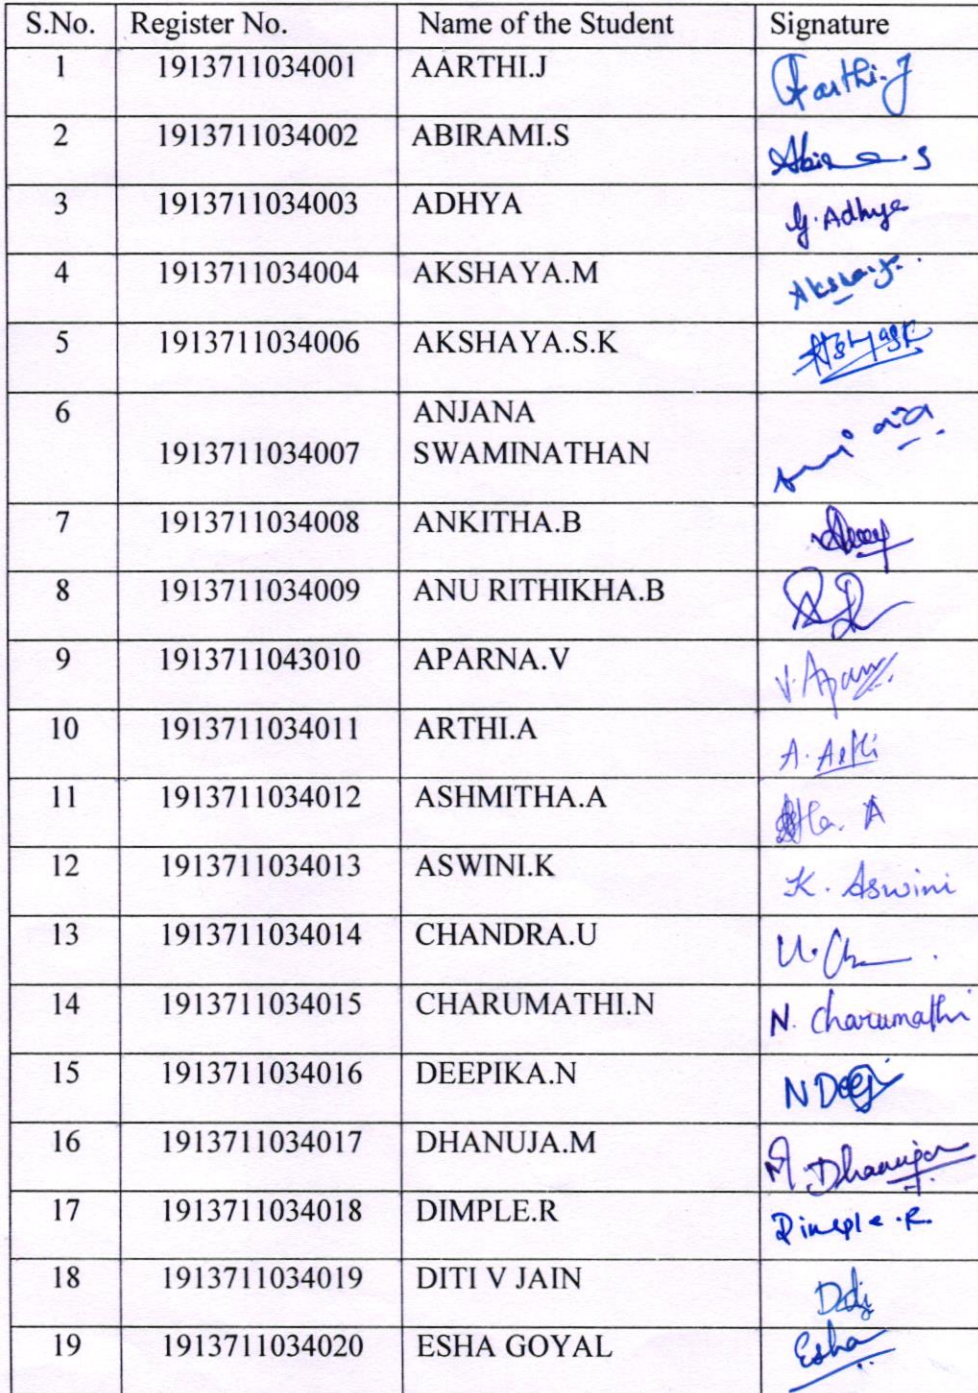 S.No. Register No. Name of the Student Signature
1 1913711034001 AARTHI.J Aarthi.J
2 1913711034002 ABIRAMI.S
3 1913711034003 ADHYA G.Adhya
4 1913711034004 AKSHAYA.M
5 1913711034006 AKSHAYA.S.K
6 ANJANA
1913711034007 SWAMINATHAN
7 1913711034008 ANKITHA.B
8 1913711034009 ANU RITHIKHA.B
9 1913711043010 APARNA.V
10 1913711034011 ARTHI.A A. Arthi
11 1913711034012 ASHMITHA.A
12 1913711034013 ASWINI.K K. Aswini
13 1913711034014 CHANDRA.U
14 1913711034015 CHARUMATHI.N N. Charumathi
15 1913711034016 DEEPIKA.N
16 1913711034017 DHANUJA.M M. Dhanuja
17 1913711034018 DIMPLE.R Dimple.R
18 1913711034019 DITI V JAIN
19 1913711034020 ESHA GOYAL Esha